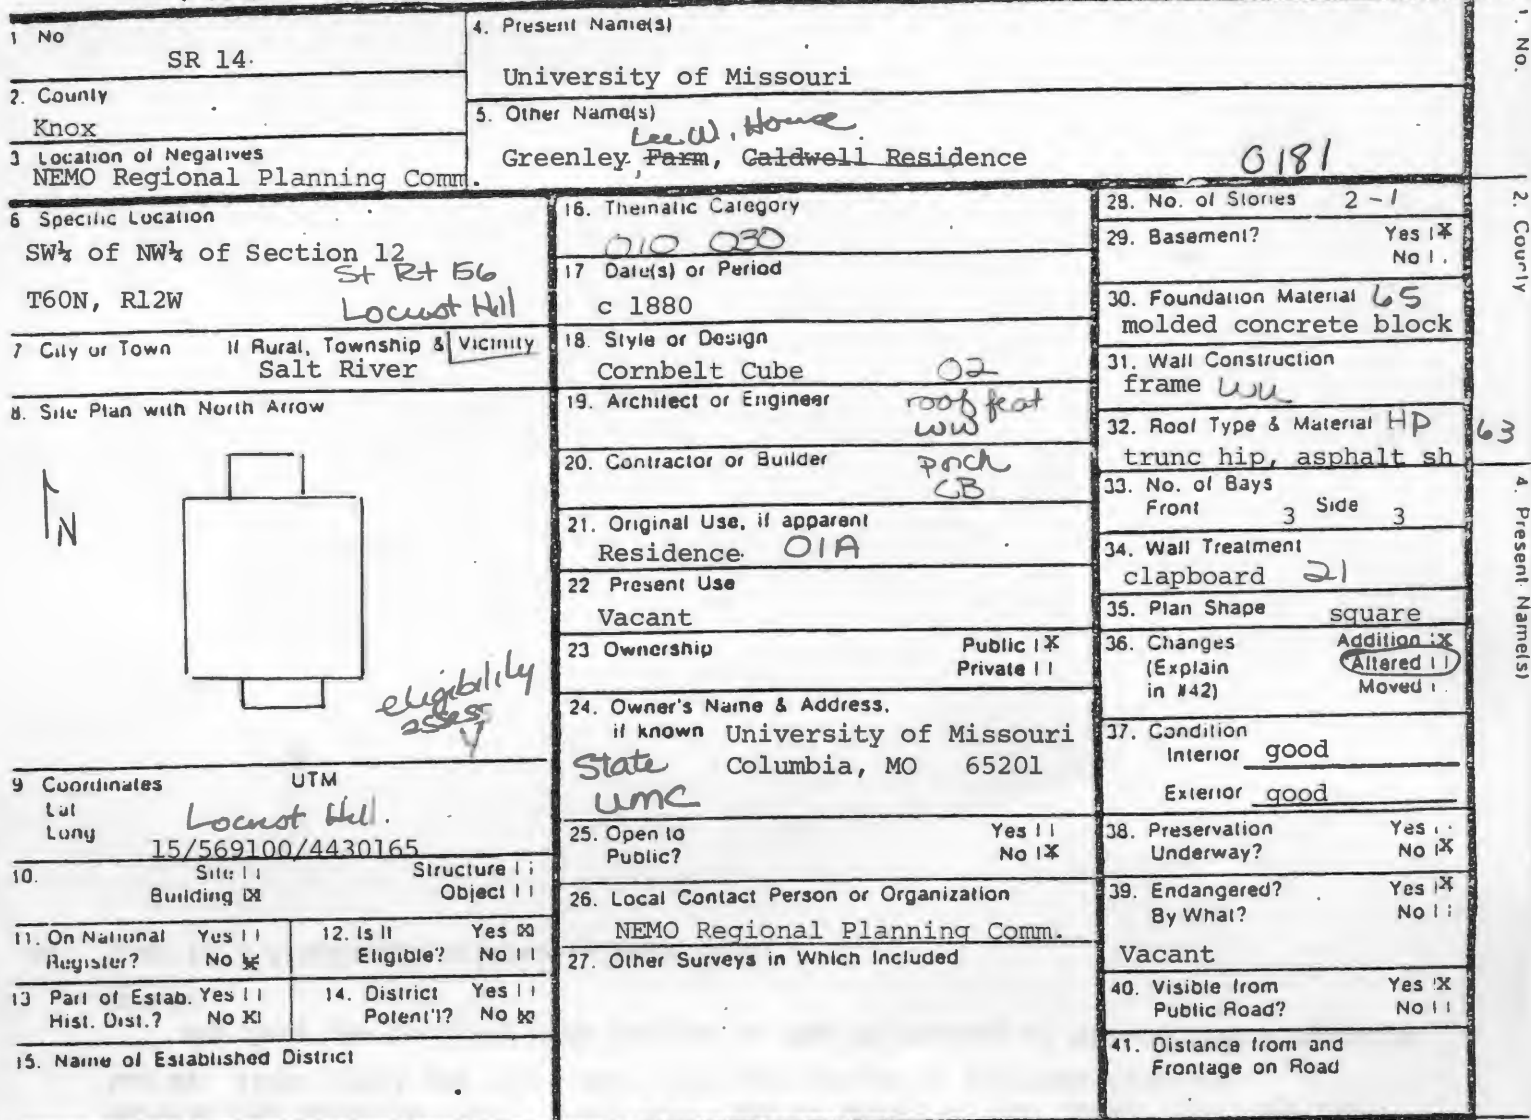 1 No
SR 14.
2. County
Knox
3 Location of Negatives
NEMO Regional Planning Comm.
4. Present Name(s)
University of Missouri
5. Other Name(s)
Lee W. House
Greenley Farm, Caldwell Residence
0181
6 Specific Location
SW¼ of NW¼ of Section 12
St Rt 156
T60N, R12W
Locust Hill
7 City or Town If Rural, Township & Vicinity
Salt River
8. Site Plan with North Arrow
N
eligibility
assess
9 Coordinates UTM
Lat
Long
Locust Hill.
15/569100/4430165
10. Site Structure
Building X Object
11. On National Register? Yes No X
12. Is It Eligible? Yes X No
13 Part of Estab. Hist. Dist.? Yes No X
14. District Potent'l? Yes No X
15. Name of Established District
16. Thematic Category
010 030
17 Date(s) or Period
c 1880
18. Style or Design
Cornbelt Cube 02
19. Architect or Engineer
roof feat
WW
20. Contractor or Builder
porch
CB
21. Original Use, if apparent
Residence. 01A
22 Present Use
Vacant
23 Ownership Public X
Private
24. Owner's Name & Address,
if known University of Missouri
Columbia, MO 65201
State
UMC
25. Open to Public? Yes
No X
26. Local Contact Person or Organization
NEMO Regional Planning Comm.
27. Other Surveys in Which Included
28. No. of Stories 2-1
29. Basement? Yes X
No
30. Foundation Material 65
molded concrete block
31. Wall Construction
frame WU
32. Roof Type & Material HP
trunc hip, asphalt sh
63
33. No. of Bays
Front 3 Side 3
34. Wall Treatment
clapboard 21
35. Plan Shape square
36. Changes Addition X
(Explain Altered
in #42) Moved
37. Condition
Interior good
Exterior good
38. Preservation Yes
Underway? No X
39. Endangered? Yes X
By What? No
Vacant
40. Visible from Yes X
Public Road? No
41. Distance from and
Frontage on Road
1. No.
2. County
4. Present Name(s)